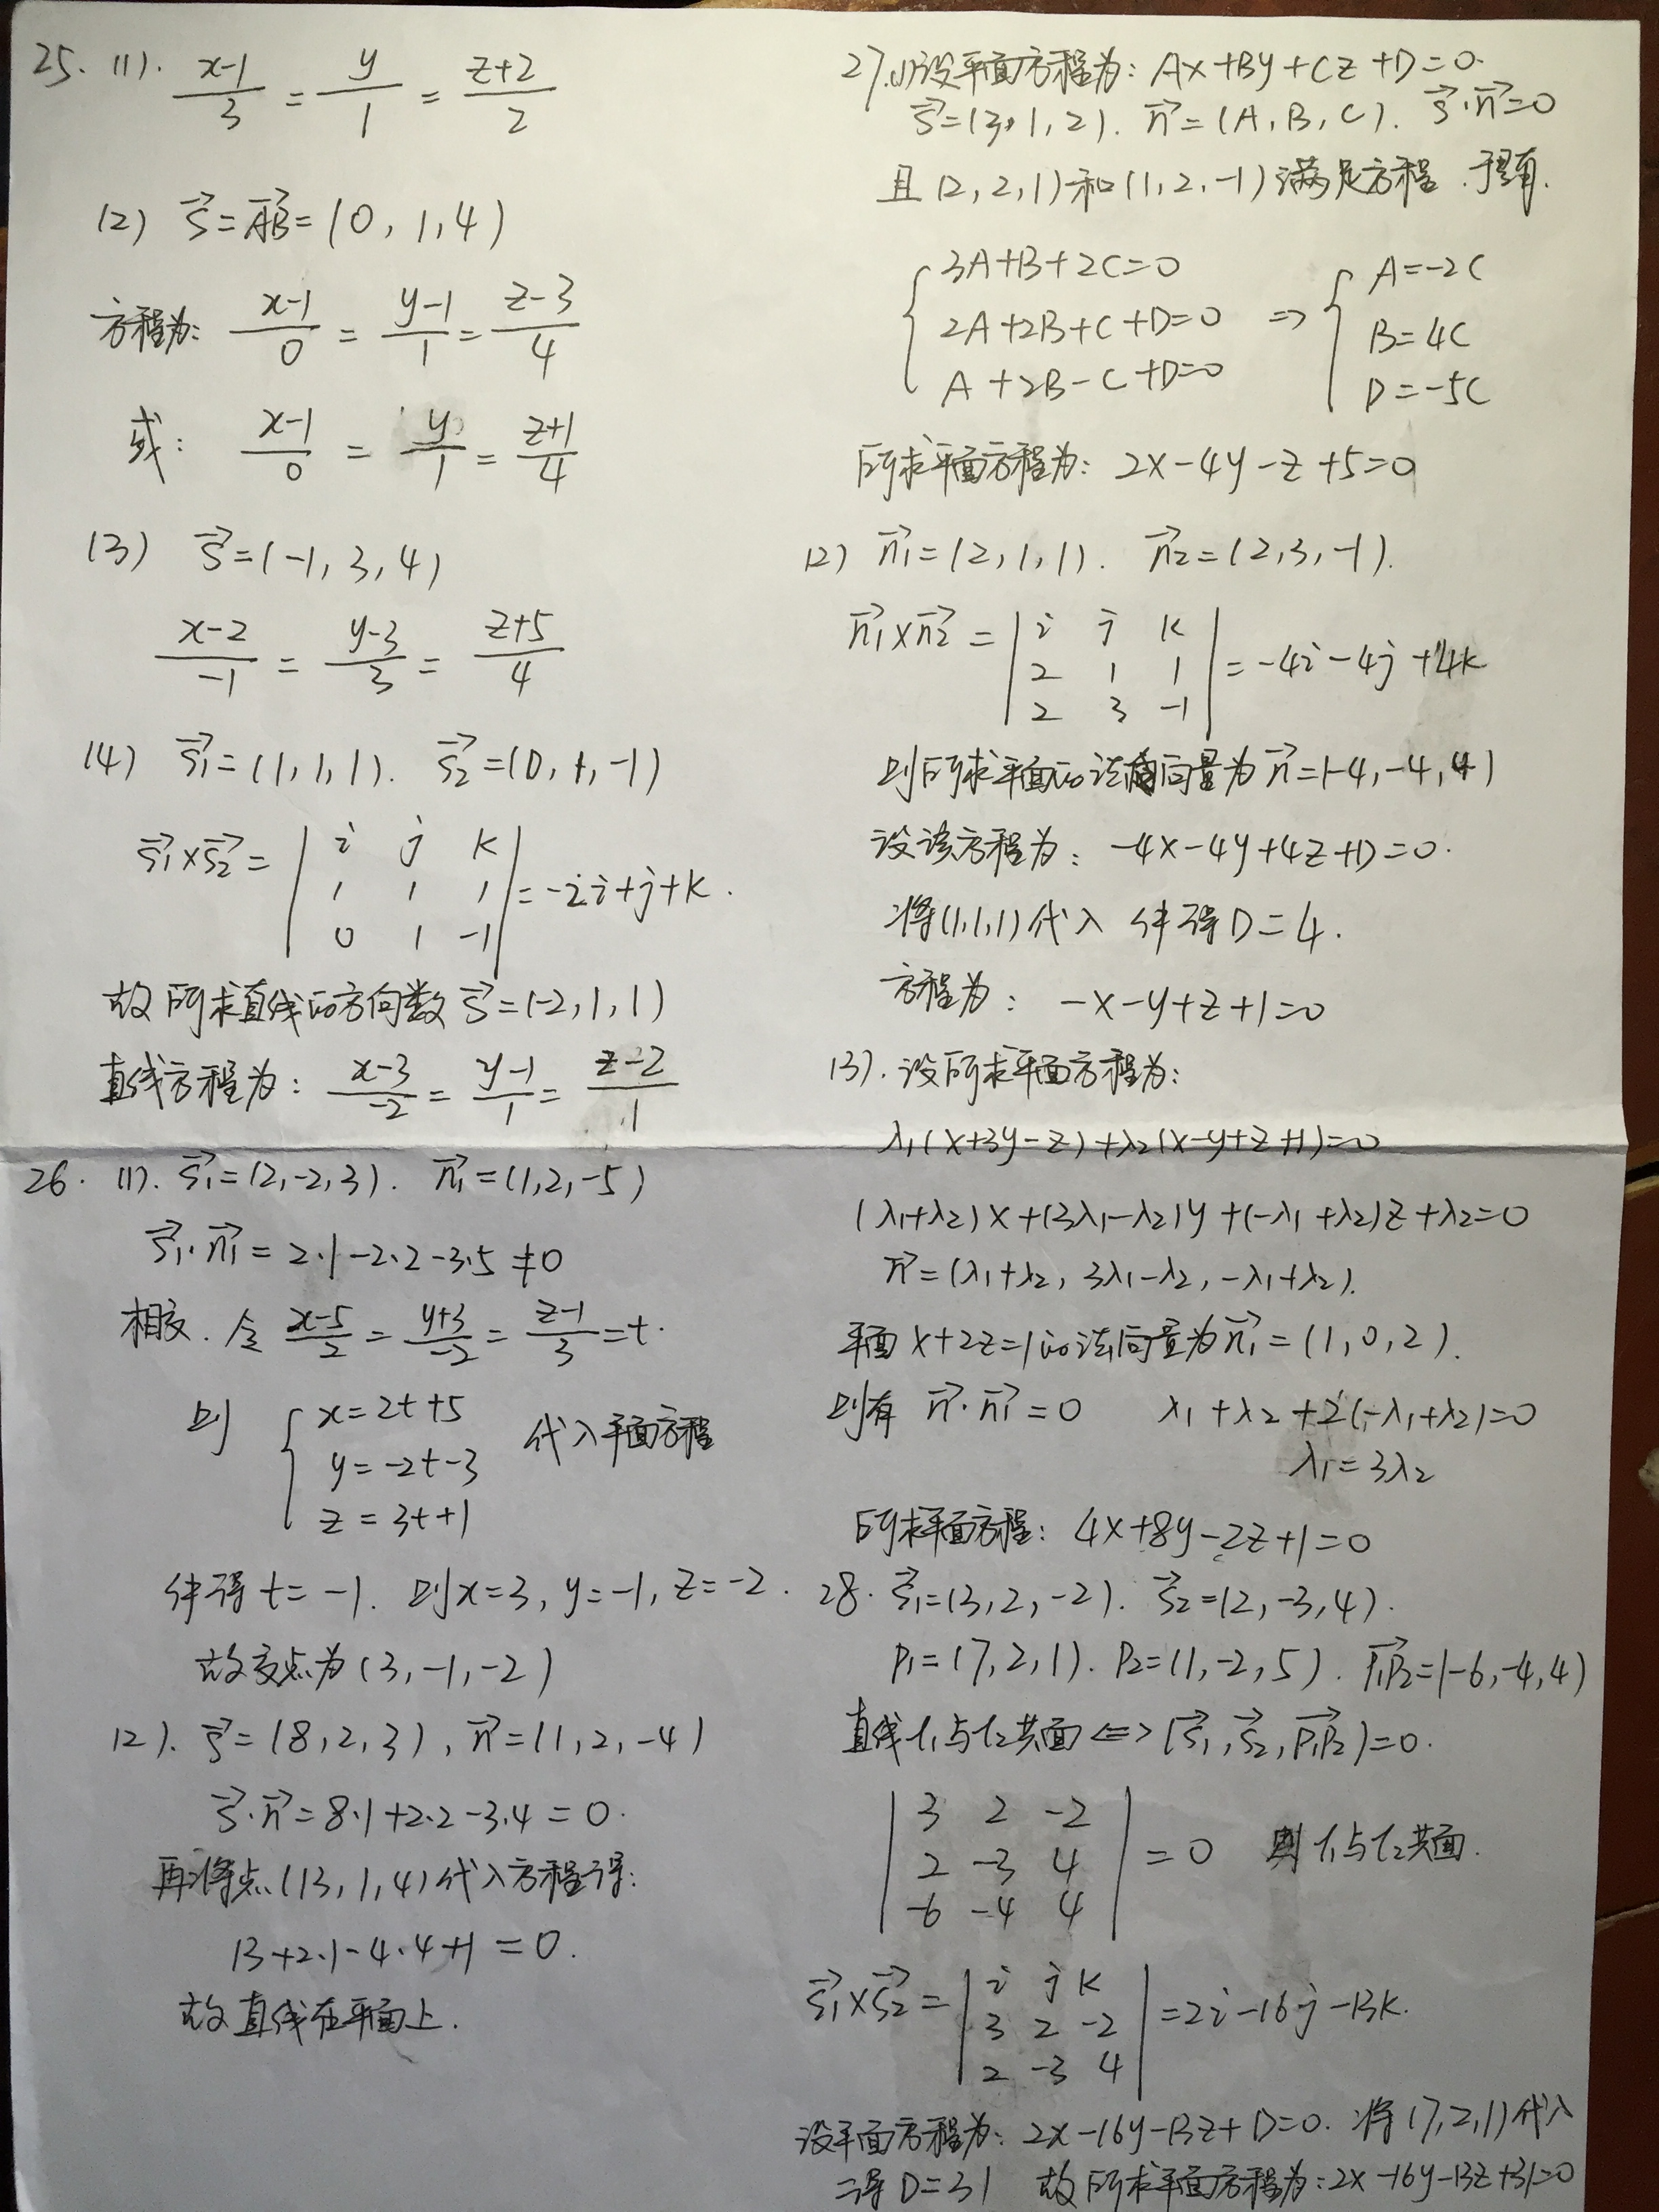 25. (1). \frac{x-1}{3} = \frac{y}{1} = \frac{z+2}{2}
(2) \vec{s} = \vec{AB} = (0, 1, 4)
方程为: \frac{x-1}{0} = \frac{y-1}{1} = \frac{z-3}{4}
或: \frac{x-1}{0} = \frac{y}{1} = \frac{z+1}{4}
(3) \vec{s} = (-1, 3, 4)
\frac{x-2}{-1} = \frac{y-3}{3} = \frac{z+5}{4}
(4) \vec{s_1} = (1, 1, 1). \vec{s_2} = (0, 1, -1)
\vec{s_1} × \vec{s_2} = | i j k |
| 1 1 1 | = -2i + j + k.
| 0 1 -1 |
故所求直线的方向数 \vec{s} = (-2, 1, 1)
直线方程为: \frac{x-3}{-2} = \frac{y-1}{1} = \frac{z-2}{1}
26. (1). \vec{s_1} = (2, -2, 3). \vec{n_1} = (1, 2, -5)
\vec{s_1} · \vec{n_1} = 2·1 - 2·2 - 3·5 ≠ 0
相交. 令 \frac{x-5}{2} = \frac{y+3}{-2} = \frac{z-1}{3} = t.
则 { x = 2t + 5
y = -2t - 3 代入平面方程
z = 3t + 1
解得 t = -1. 则 x = 3, y = -1, z = -2.
故交点为 (3, -1, -2)
(2). \vec{s} = (8, 2, 3), \vec{n} = (1, 2, -4)
\vec{s} · \vec{n} = 8·1 + 2·2 - 3·4 = 0.
再将点 (13, 1, 4) 代入方程得:
13 + 2·1 - 4·4 + 1 = 0.
故直线在平面上.
27. (1) 设平面方程为: Ax + By + Cz + D = 0.
\vec{s} = (3, 1, 2). \vec{n} = (A, B, C). \vec{s} · \vec{n} = 0
且 (2, 2, 1) 和 (1, 2, -1) 满足方程. 于是有.
{ 3A + B + 2C = 0 { A = -2C
2A + 2B + C + D = 0 ⇒ B = 4C
A + 2B - C + D = 0 D = -5C
所求平面方程为: 2x - 4y - z + 5 = 0
(2) \vec{n_1} = (2, 1, 1). \vec{n_2} = (2, 3, -1).
\vec{n_1} × \vec{n_2} = | i j k |
| 2 1 1 | = -4i - 4j + 4k
| 2 3 -1 |
则所求平面的法向量为 \vec{n} = (-4, -4, 4)
设该方程为: -4x - 4y + 4z + D = 0.
将 (1, 1, 1) 代入 解得 D = 4.
方程为: -x - y + z + 1 = 0
(3). 设所求平面方程为:
λ_1(x + 3y - z) + λ_2(x - y + z + 1) = 0
(λ_1 + λ_2)x + (3λ_1 - λ_2)y + (-λ_1 + λ_2)z + λ_2 = 0
\vec{n} = (λ_1 + λ_2, 3λ_1 - λ_2, -λ_1 + λ_2).
平面 x + 2z = 1 的法向量为 \vec{n_1} = (1, 0, 2).
则有 \vec{n} · \vec{n_1} = 0 λ_1 + λ_2 + 2(-λ_1 + λ_2) = 0
λ_1 = 3λ_2
所求平面方程: 4x + 8y - 2z + 1 = 0
28. \vec{s_1} = (3, 2, -2). \vec{s_2} = (2, -3, 4).
P_1 = (7, 2, 1). P_2 = (1, -2, 5). \vec{P_1P_2} = (-6, -4, 4)
直线 l_1 与 l_2 共面 ⇔ (\vec{s_1}, \vec{s_2}, \vec{P_1P_2}) = 0.
| 3 2 -2 |
| 2 -3 4 | = 0 则 l_1 与 l_2 共面.
| -6 -4 4 |
\vec{s_1} × \vec{s_2} = | i j k |
| 3 2 -2 | = 2i - 16j - 13k.
| 2 -3 4 |
设平面方程为: 2x - 16y - 13z + D = 0. 将 (7, 2, 1) 代入
得 D = 31 故所求平面方程为: 2x - 16y - 13z + 31 = 0